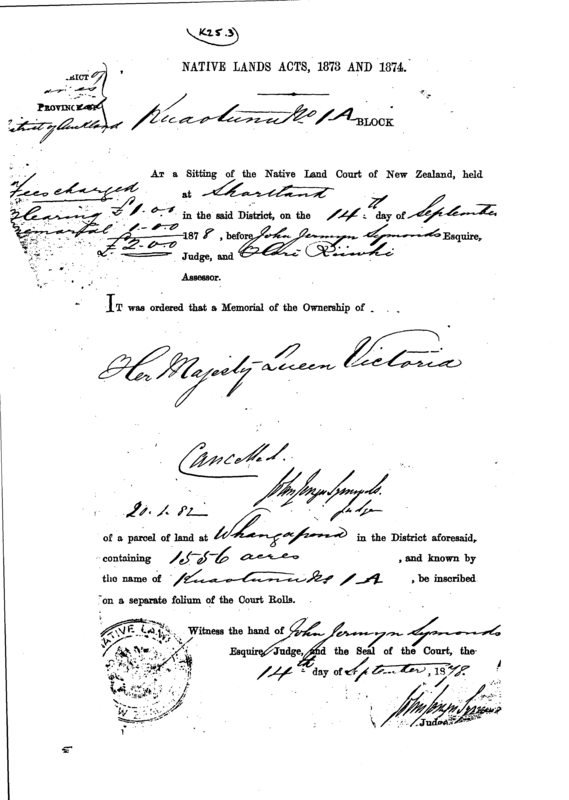 K25.3
NATIVE LANDS ACTS, 1873 AND 1874.
PROVINCE
District of Auckland
Kuaotunu No 1A BLOCK
AT a Sitting of the Native Land Court of New Zealand, held
Fees charged
at Shortland
Hearing £1.0.0
in the said District, on the 14th day of September
Memorial 1-0.0
1878, before John Jermyn Symonds Esquire,
£2.0.0
Judge, and
Assessor.
IT was ordered that a Memorial of the Ownership of
Her Majesty Queen Victoria
Cancelled.
John Jermyn Symonds
Judge
20.1.82
of a parcel of land at Whangapoua in the District aforesaid,
containing 1556 acres, and known by
the name of Kuaotunu No 1A, be inscribed
on a separate folium of the Court Rolls.
Witness the hand of John Jermyn Symonds
Esquire, Judge, and the Seal of the Court, the
14th day of September, 1878.
John Jermyn Symonds
Judge
NATIVE LAND